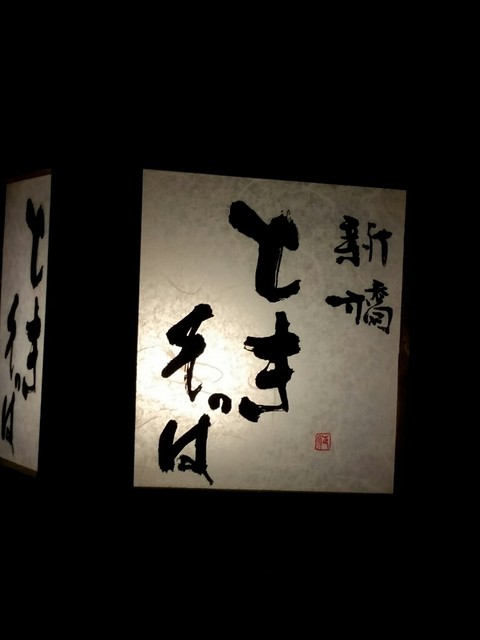 新橋
とき
そば
とき
そば